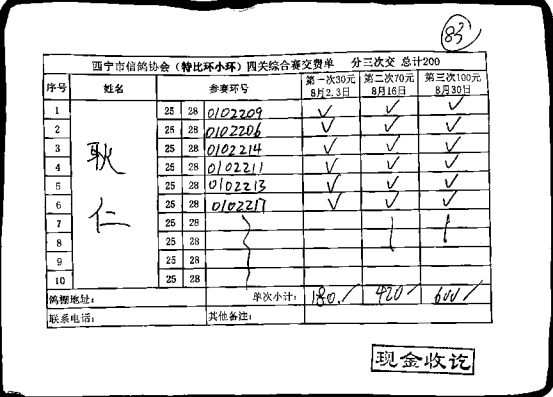 83
西宁市信鸽协会（特比环小环）四关综合赛交费单 分三次交 总计200
序号 姓名 参赛环号 第一次30元 8月2.3日 第二次70元 8月16日 第三次100元 8月30日
1 25 28 0102209 ✓ ✓ ✓
2 25 28 0102206 ✓ ✓ ✓
3 耿 25 28 0102214 ✓ ✓ ✓
4 25 28 0102211 ✓ ✓ ✓
5 25 28 0102213 ✓ ✓ ✓
6 仁 25 28 0102217 ✓ ✓ ✓
7 25 28
8 25 28
9 25 28
10 25 28
鸽棚地址： 单次小计： 180. 420 600
联系电话： 其他备注：
现金收讫